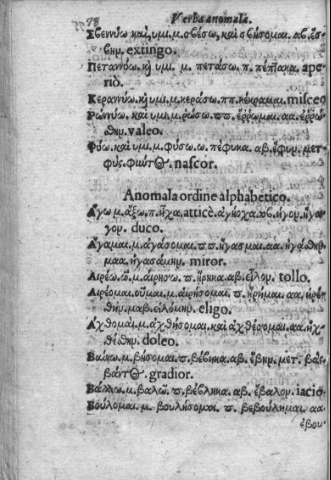 Verba anomala.
Σβεννύω καὶ, υμι, μ. σβέσω, καὶ σβήσομαι. αβ. ἔσ-
βην. extingo.
Πεταννύω. κὴ υμι. μ. πετάσω. π. πέπακα. ape-
rio.
Κεραννύω. κὴ υμι. μ. κεράσω. ππ. κέκραμαι. misceo
Ρωννύω. καὶ υμι. μ. ρώσω. ππ. ἔρρωμαι. αα. ἐρρώ
θην. valeo.
Φύω. καὶ υμι. μ. φύσω. π. πέφυκα. αβ. ἔφυν. μετ-
φύς. φύντος. nascor.
Anomala ordine alphabetico.
Ἄγω μ. ἄξω. π. ἦχα. atticè. ἀγήοχα. αβ. ἦγον. ἤγα-
γον. duco.
Ἄγαμαι. μ. ἀγάσομαι. ππ. ἤγασμαι. αα. ἠγάσθην.
μαα. ἠγασάμην. miror.
Αἱρέω. ῶ. μ. αἱρήσω. π. ᾕρηκα. αβ. εἷλον. tollo.
Αἱρέομαι. οῦμαι. μ. αἱρήσομαι. π. ᾕρημαι. αα. ᾑρέ-
θην. μαβ. εἱλόμην. eligo.
Ἄχθομαι. μ. ἀχθήσομαι. καὶ ἀχθέσομαι. αα. ἠχ-
θέσθην. doleo.
Βαίνω. μ. βήσομαι. π. βέβηκα. αβ. ἔβην. μετ. βὰς
βάντος. gradior.
Βάλλω. μ. βαλῶ. π. βέβληκα. αβ. ἔβαλον. iacio
Βούλομαι. μ. βουλήσομαι. π. βεβούλημαι. αα
ἐβου-